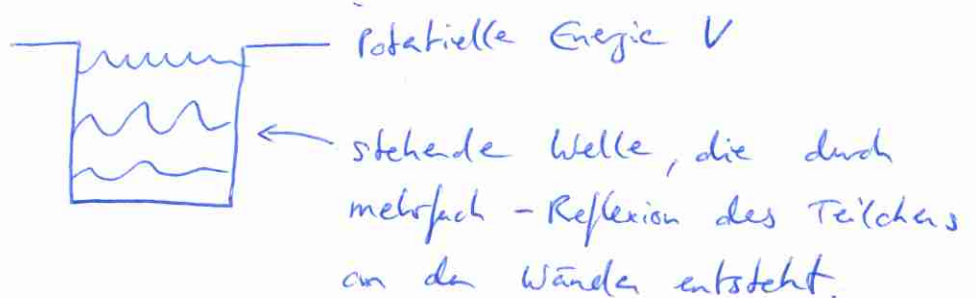 Potentielle Energie V
stehende Welle, die durch
mehrfach - Reflexion des Teilchens
an den Wänden entsteht.